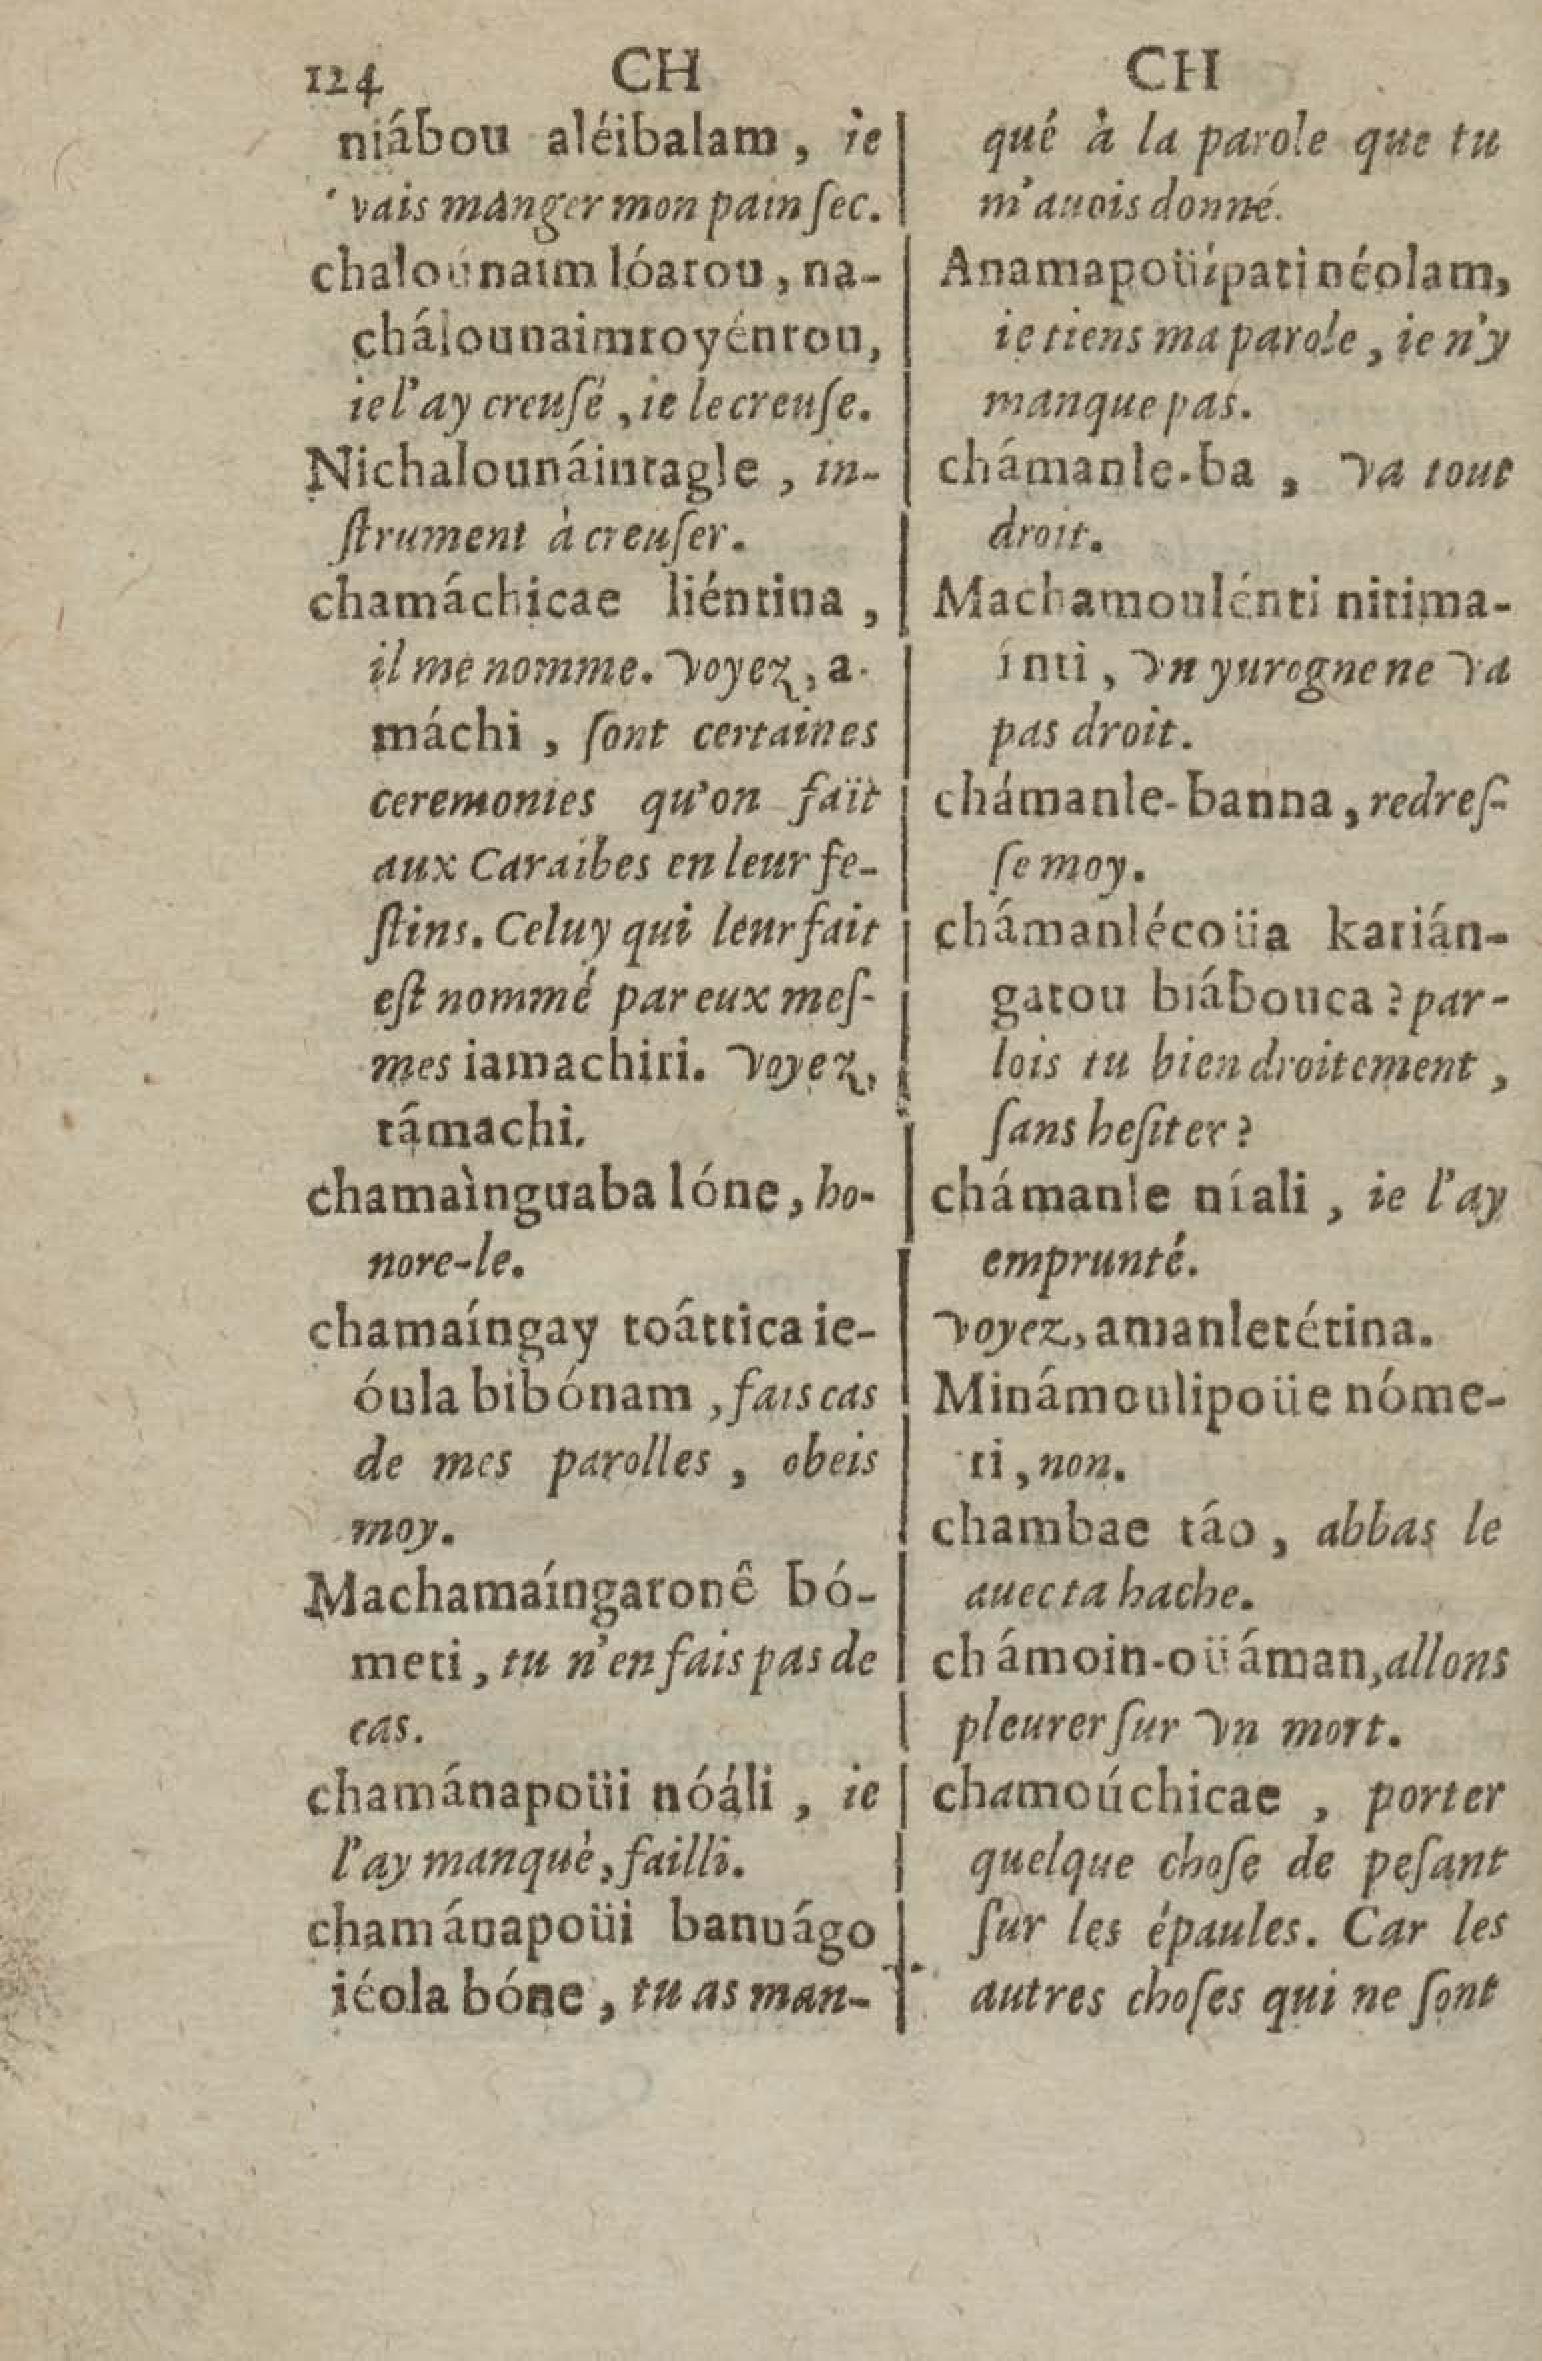 124 CH CH
niábou aléibalam, ie
vais manger mon pain ſec.
chaloúnaim lóatou, na-
chálounaimtoyéntou,
ie l'ay creuſé, ie le creuſe.
Nichalounáintagle, in-
ſtrument à creuſer.
chamáchicae liéntina,
il me nomme. Voyez, a-
máchi, ſont certaines
ceremonies qu'on faït
aux Caraibes en leur fe-
ſtins. Celuy qui leur fait
eſt nommé par eux meſ-
mes iamachiri. Voyez,
támachi.
chamaìnguaba lóne, ho-
nore-le.
chamaíngay toáttica ie-
óula bibónam, fais cas
de mes parolles, obeis
moy.
Machamaíngatonê bó-
meti, tu n'en fais pas de
cas.
chamánapoüi nóáli, ie
l'ay manqué, failli.
chamánapoüi banuágo
iéola bóne, tu as man-
qué à la parole que tu
m'auois donné.
Anamapoüípati néolam,
ie tiens ma parole, ie n'y
manque pas.
chámanle-ba, va tout
droit.
Machamoulénti nitima-
ínti, vn yurogne ne va
pas droit.
chámanle-banna, redreſ-
ſe moy.
chámanlécoüa karián-
gatou biábouca? par-
lois tu bien droitement,
ſans heſiter?
chámanle níali, ie l'ay
emprunté.
Voyez, amanletétina.
Minámoulipoüe nóme-
ti, non.
chambae táo, abbas le
auec ta hache.
chámoin-oüáman, allons
pleurer ſur vn mort.
chamoúchicae, porter
quelque choſe de peſant
ſur les épaules. Car les
autres choſes qui ne ſont